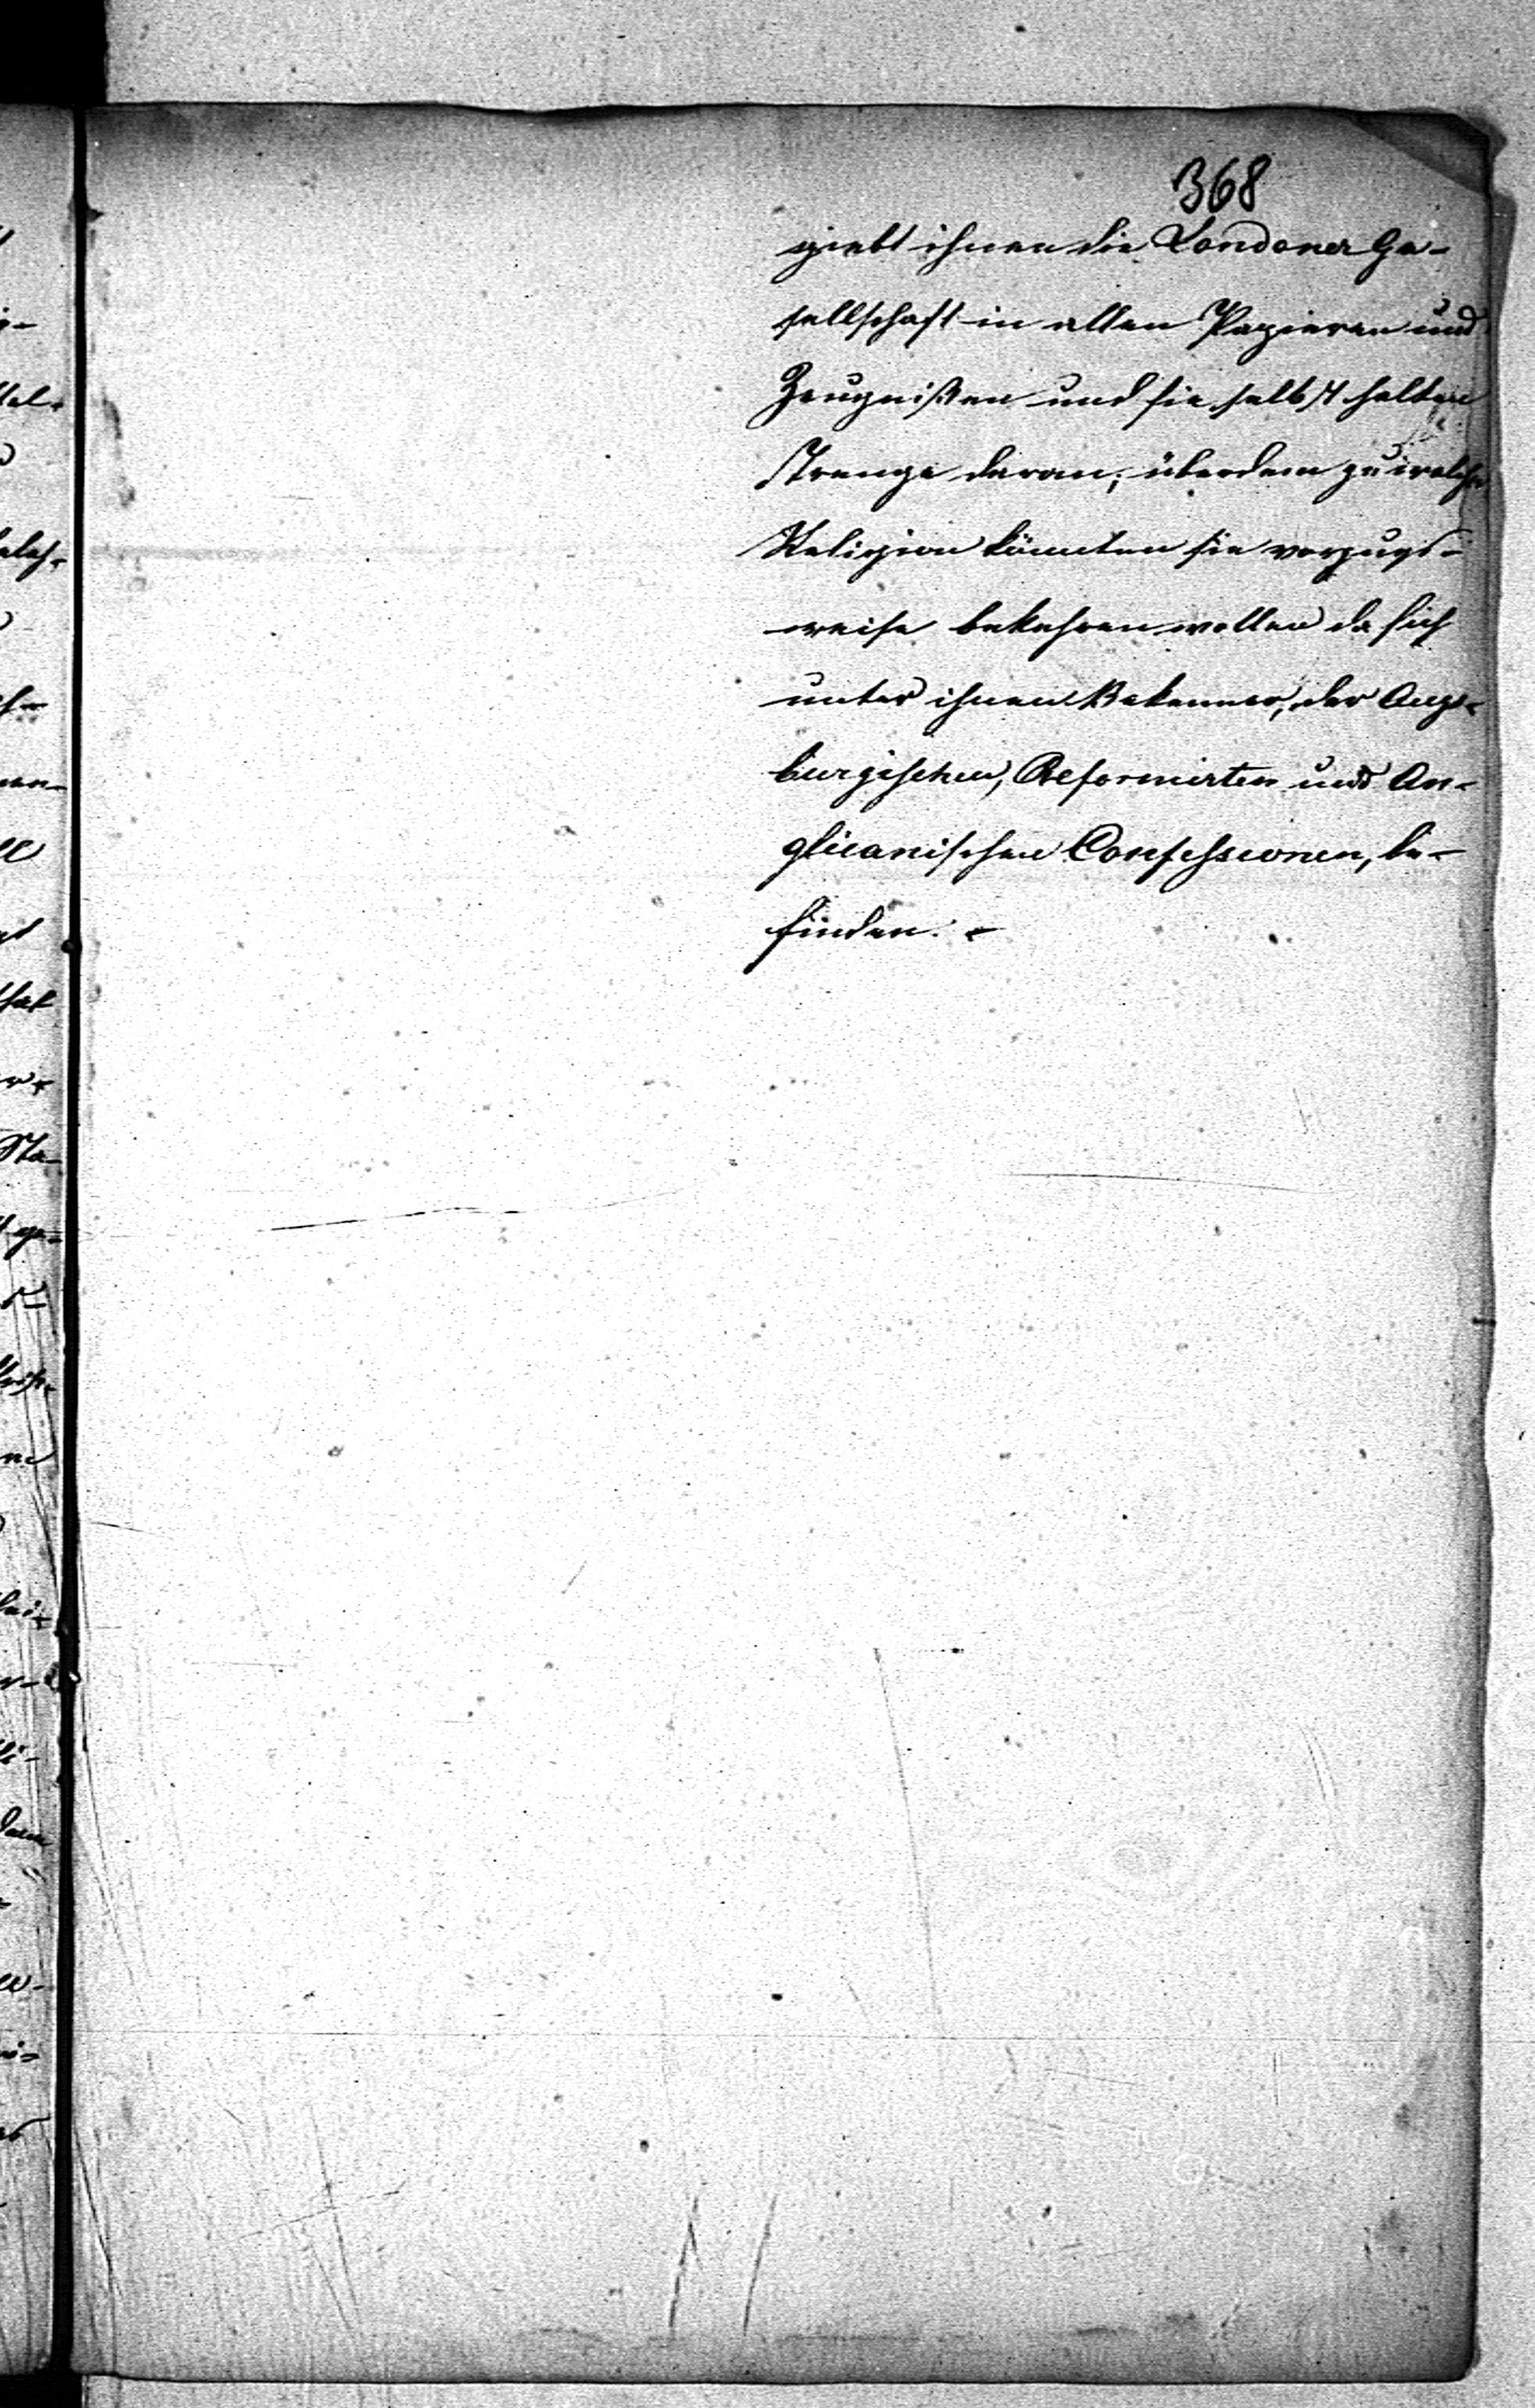 368
giebt ihnen die Londoner Ge-
sellschaft in allen Papieren und
Zeugnißen und sie selbst halten
strenge daran; überdem zu welcher
Religion könnten sie vorzugs-
weise bekehren wollen da sich
unter ihnen Bekenner, der Augs-
burgischen, Reformirten und An-
glicanischen Confessionen, be-
finden. -